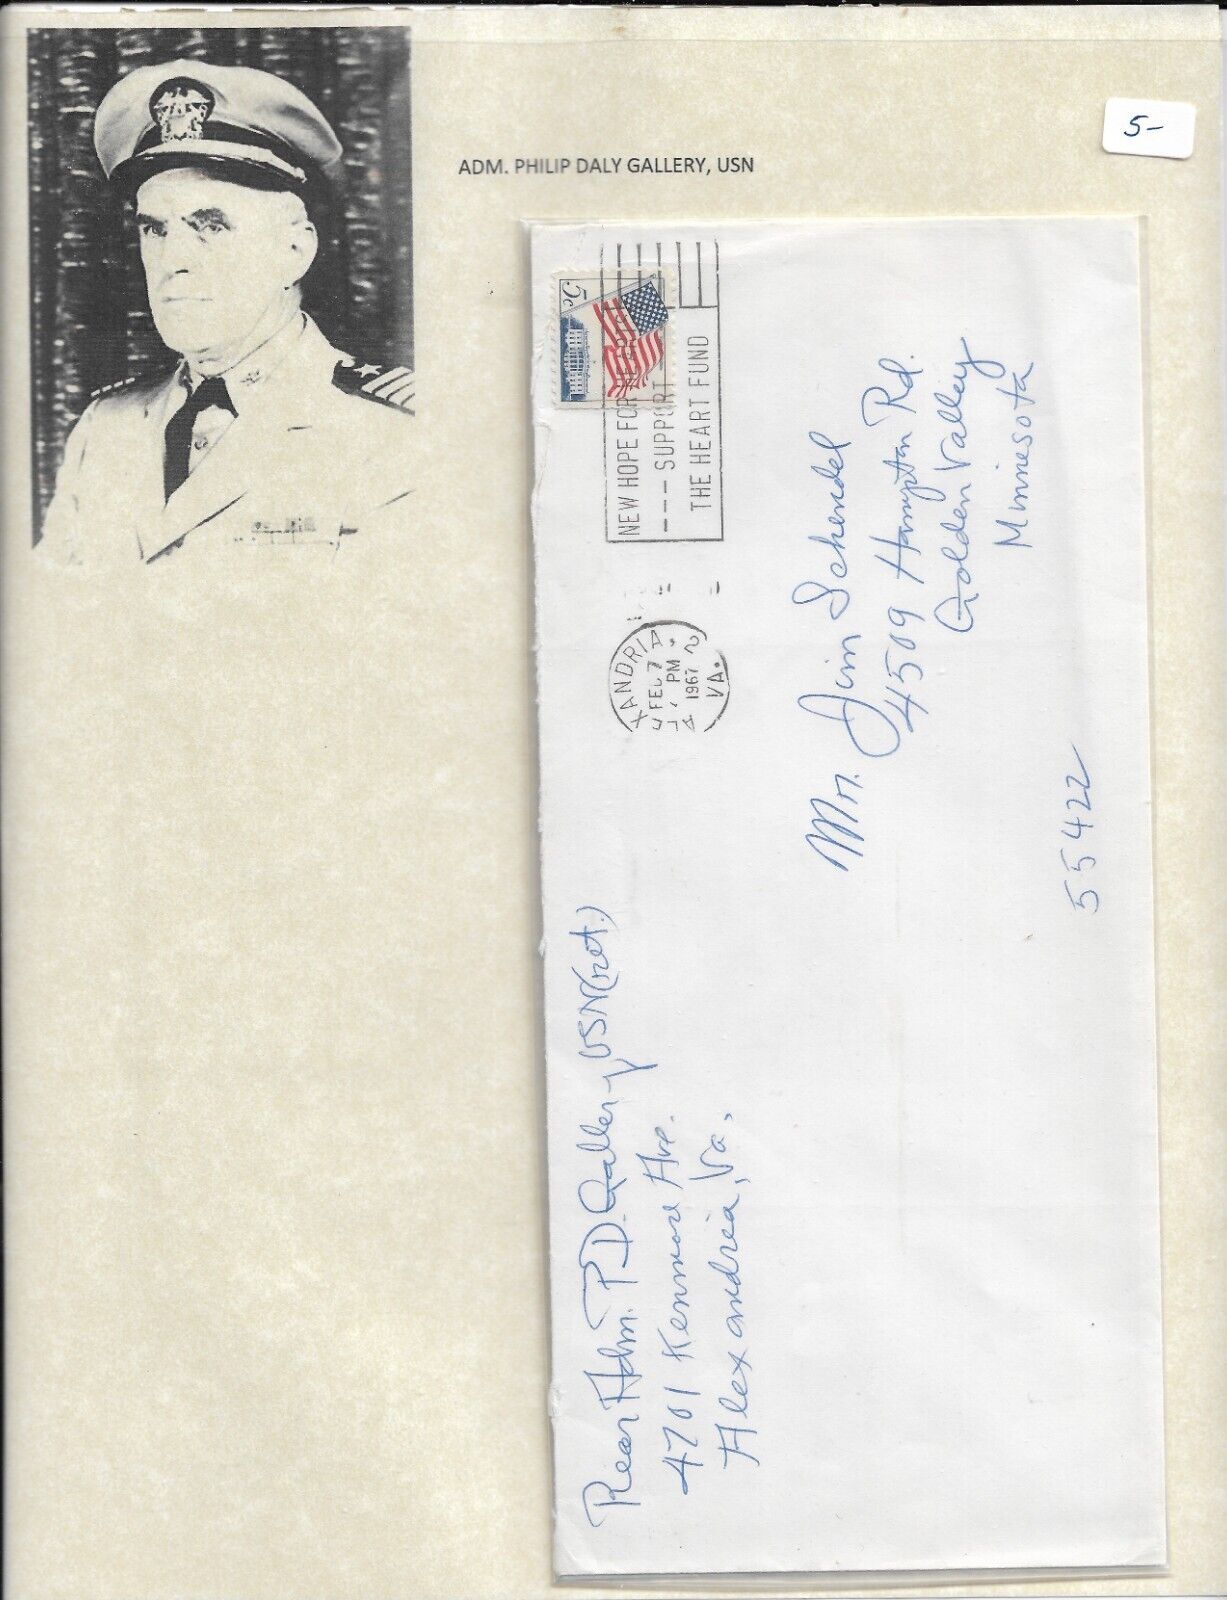 5-
ADM. PHILIP DALY GALLERY, USN
Rear Adm. P.D. Gallery USN(ret.)
4701 Kenmore Ave.
Alexandria, Va.
5c
NEW HOPE FOR
--- SUPPORT ---
THE HEART FUND
XANDRIA
FEB 7
PM
1967
VA.
Mr. Jim Schendel
4509 Hampton Rd.
Golden Valley
Minnesota
55422